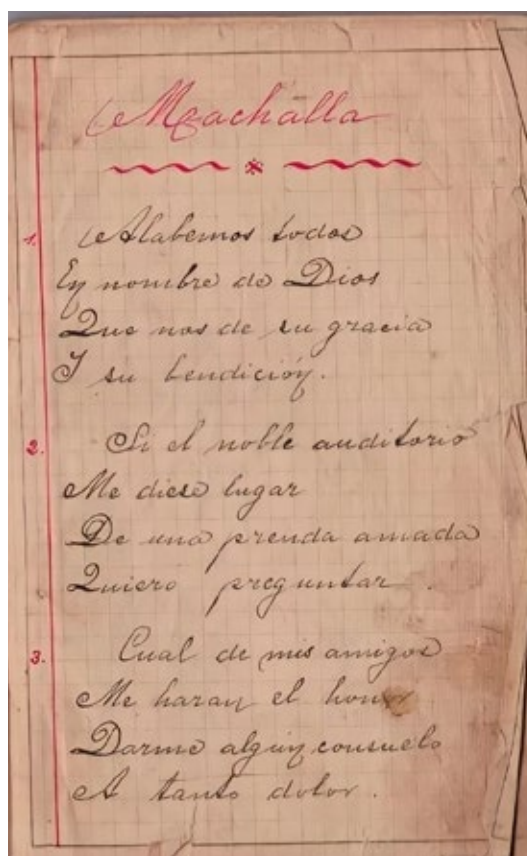 Machalla
1. Alabemos todos
En nombre de Dios
Que nos de su gracia
I su bendición.
2. Si el noble auditorio
Me diese lugar
De una prenda amada
Quiero preguntar.
3. Cual de mis amigos
Me haran el honor
Darme algun consuelo
A tanto dolor.